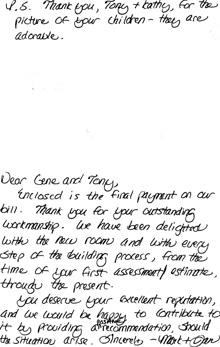 P.S. Thank you, Tony + Kathy, for the
picture of your children - they are
adorable.
Dear Gene and Tony,
Enclosed is the final payment on our
bill. Thank you for your outstanding
workmanship. We have been delighted
with the new room and with every
step of the building process, from the
time of your first assessment / estimate,
through the present.
You deserve your excellent reputation,
and we would be happy to contribute to
it by providing a recommendation, should
the situation arise. Sincerely -